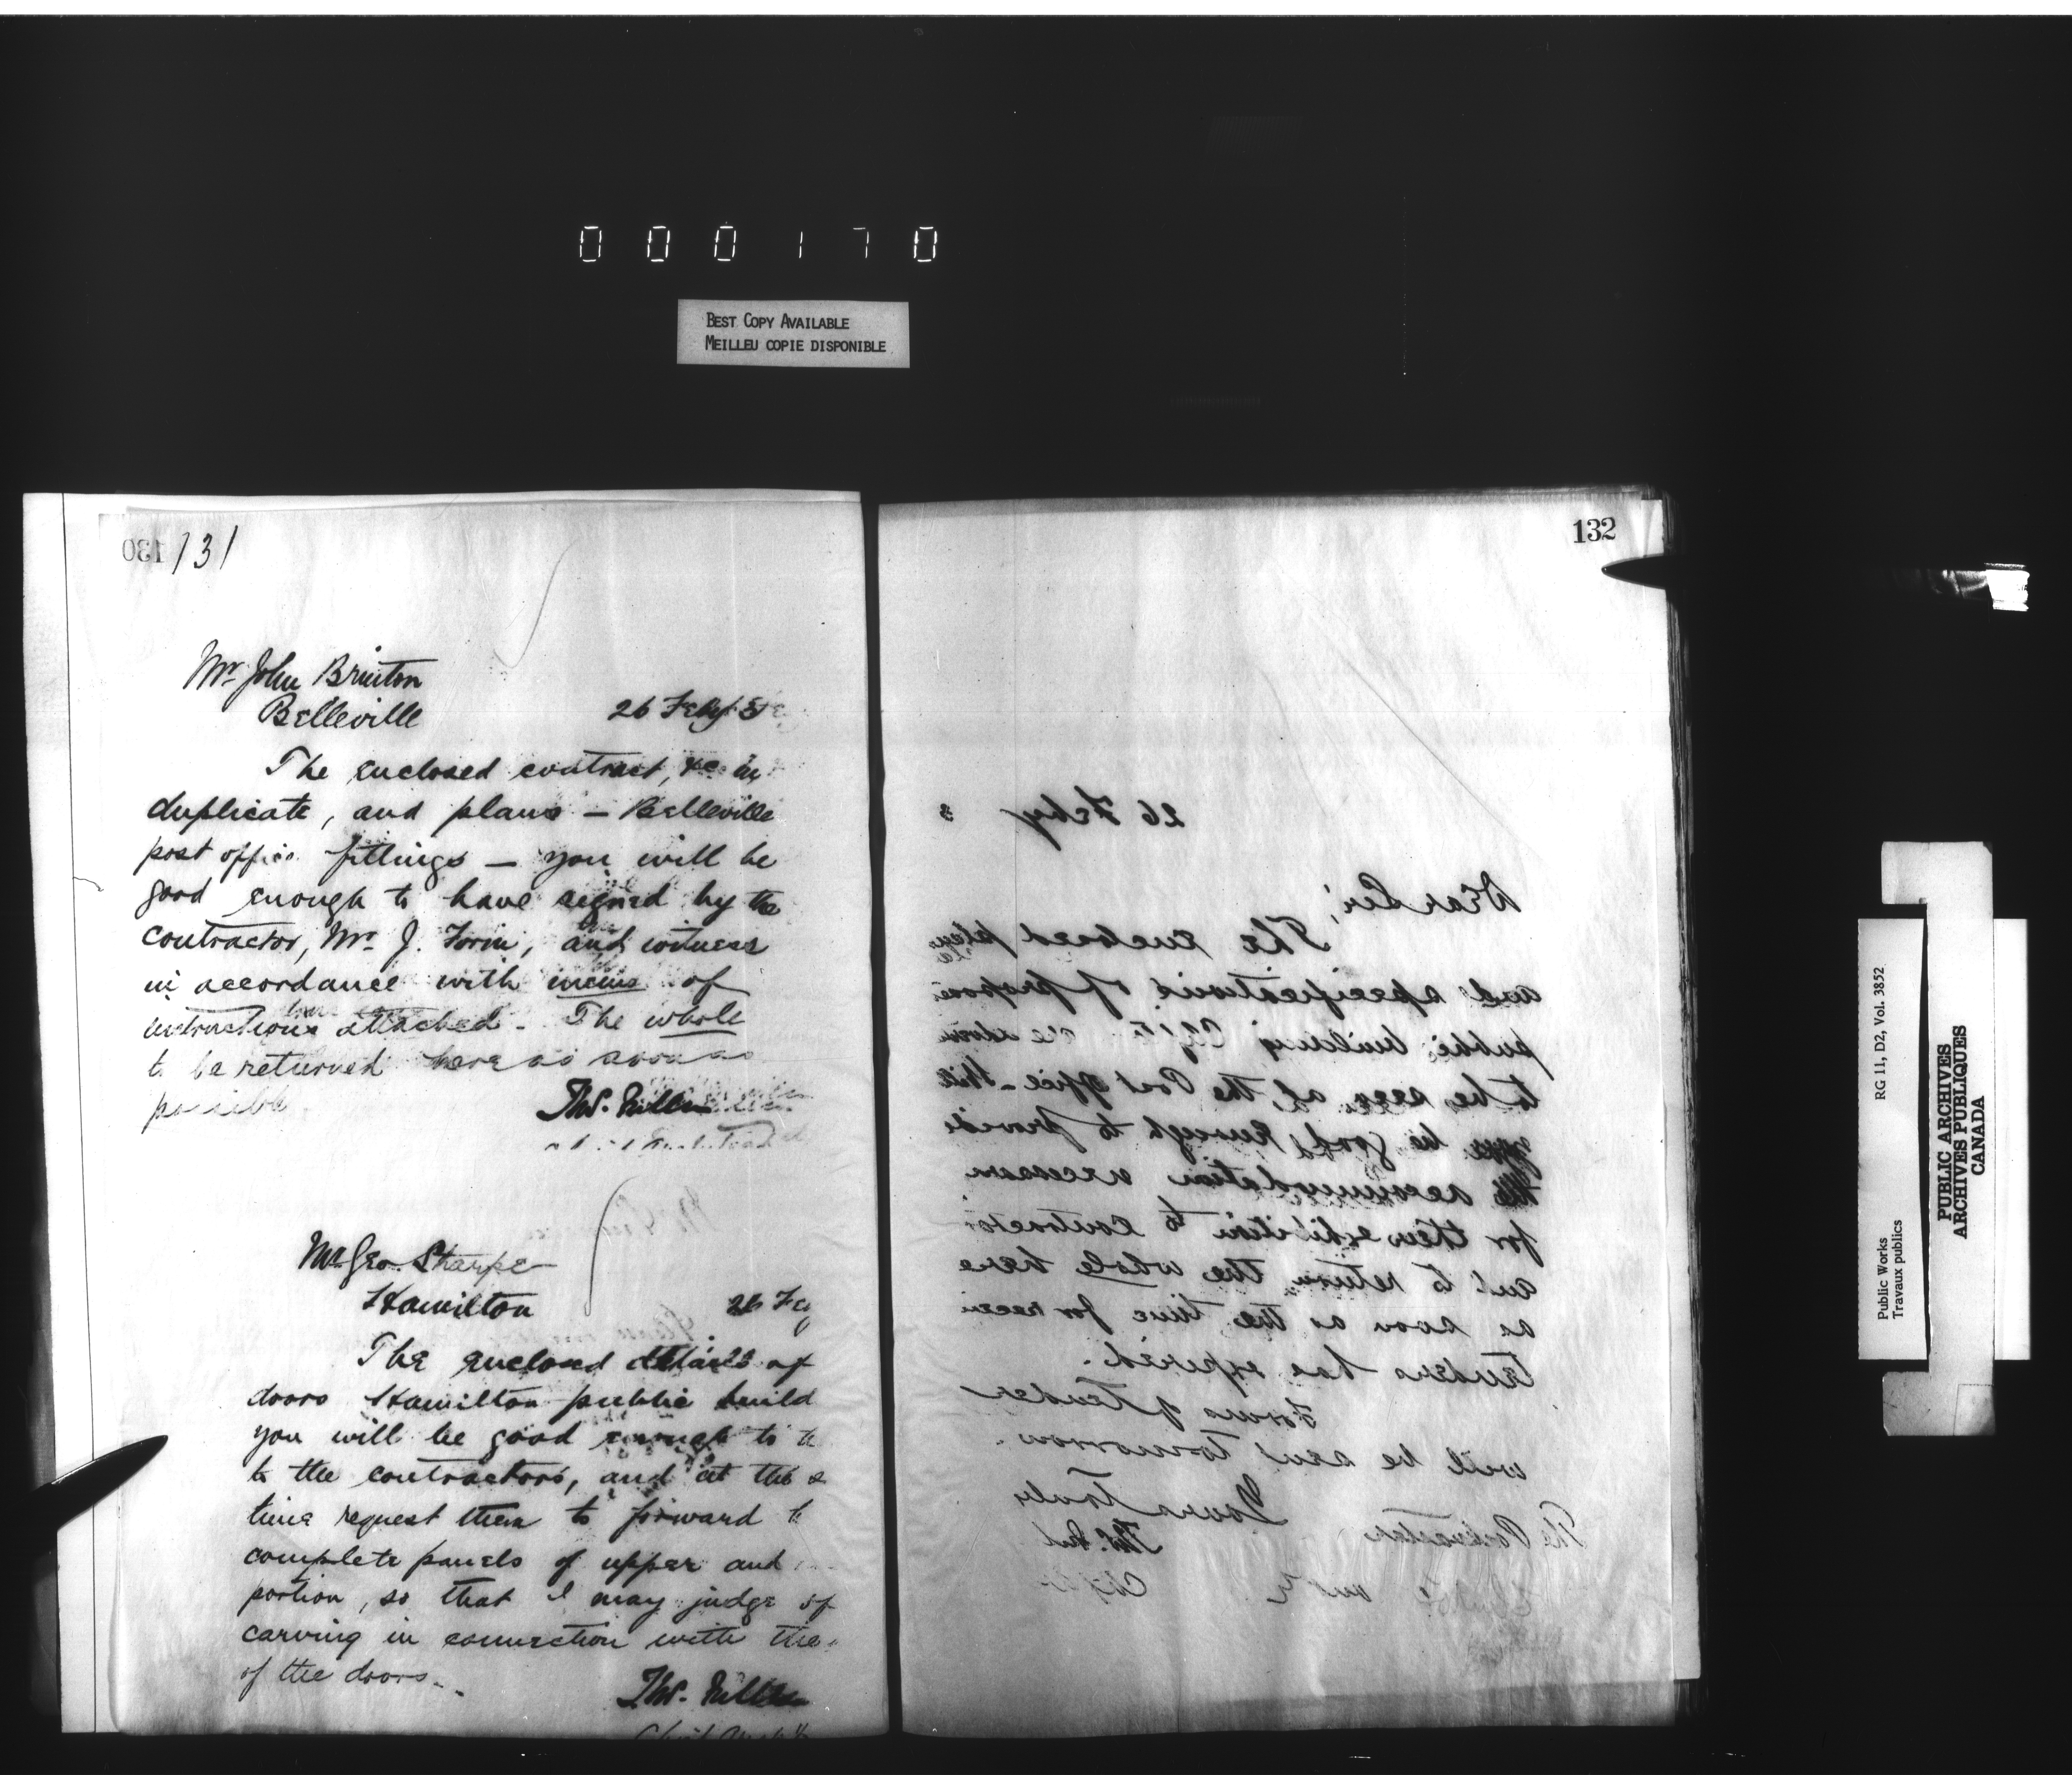 000170
BEST COPY AVAILABLE
MEILLEU COPIE DISPONIBLE
130 131
Mr. John Brinton
Belleville
26 Feby
The enclosed contract, &c in
duplicate, and plans – Belleville
post office fittings – you will be
good enough to have signed by the
contractor, Mr. J. Forin, and witness
in accordance with memo of
instructions attached. The whole
to be returned here as soon as
possible
Thos. Fuller
Mr. Geo. Sharpe
Hamilton
26 Fe
The enclosed details of
doors Hamilton public build
you will be good enough to
to the contractors, and at the s
time request them to forward
complete panels of upper and
portion, so that I may judge of
carving in connection with the
of the doors.
Thos. Fuller
Chief Archt
132
26 Feby
Dear Sir,
The enclosed plans
and specifications of propose
public building
to be seen at the Post office – Will
you be good enough to provide
the accommodation necessary
for their exhibition to contractors
and to return the whole here
as soon as the time for receiv
tenders has expired.
Forms of tender
will be sent tomorrow.
Yours truly
The Postmaster
Thos. Ful
RG 11, D2, Vol. 3852
Public Works
Travaux publics
PUBLIC ARCHIVES
ARCHIVES PUBLIQUES
CANADA